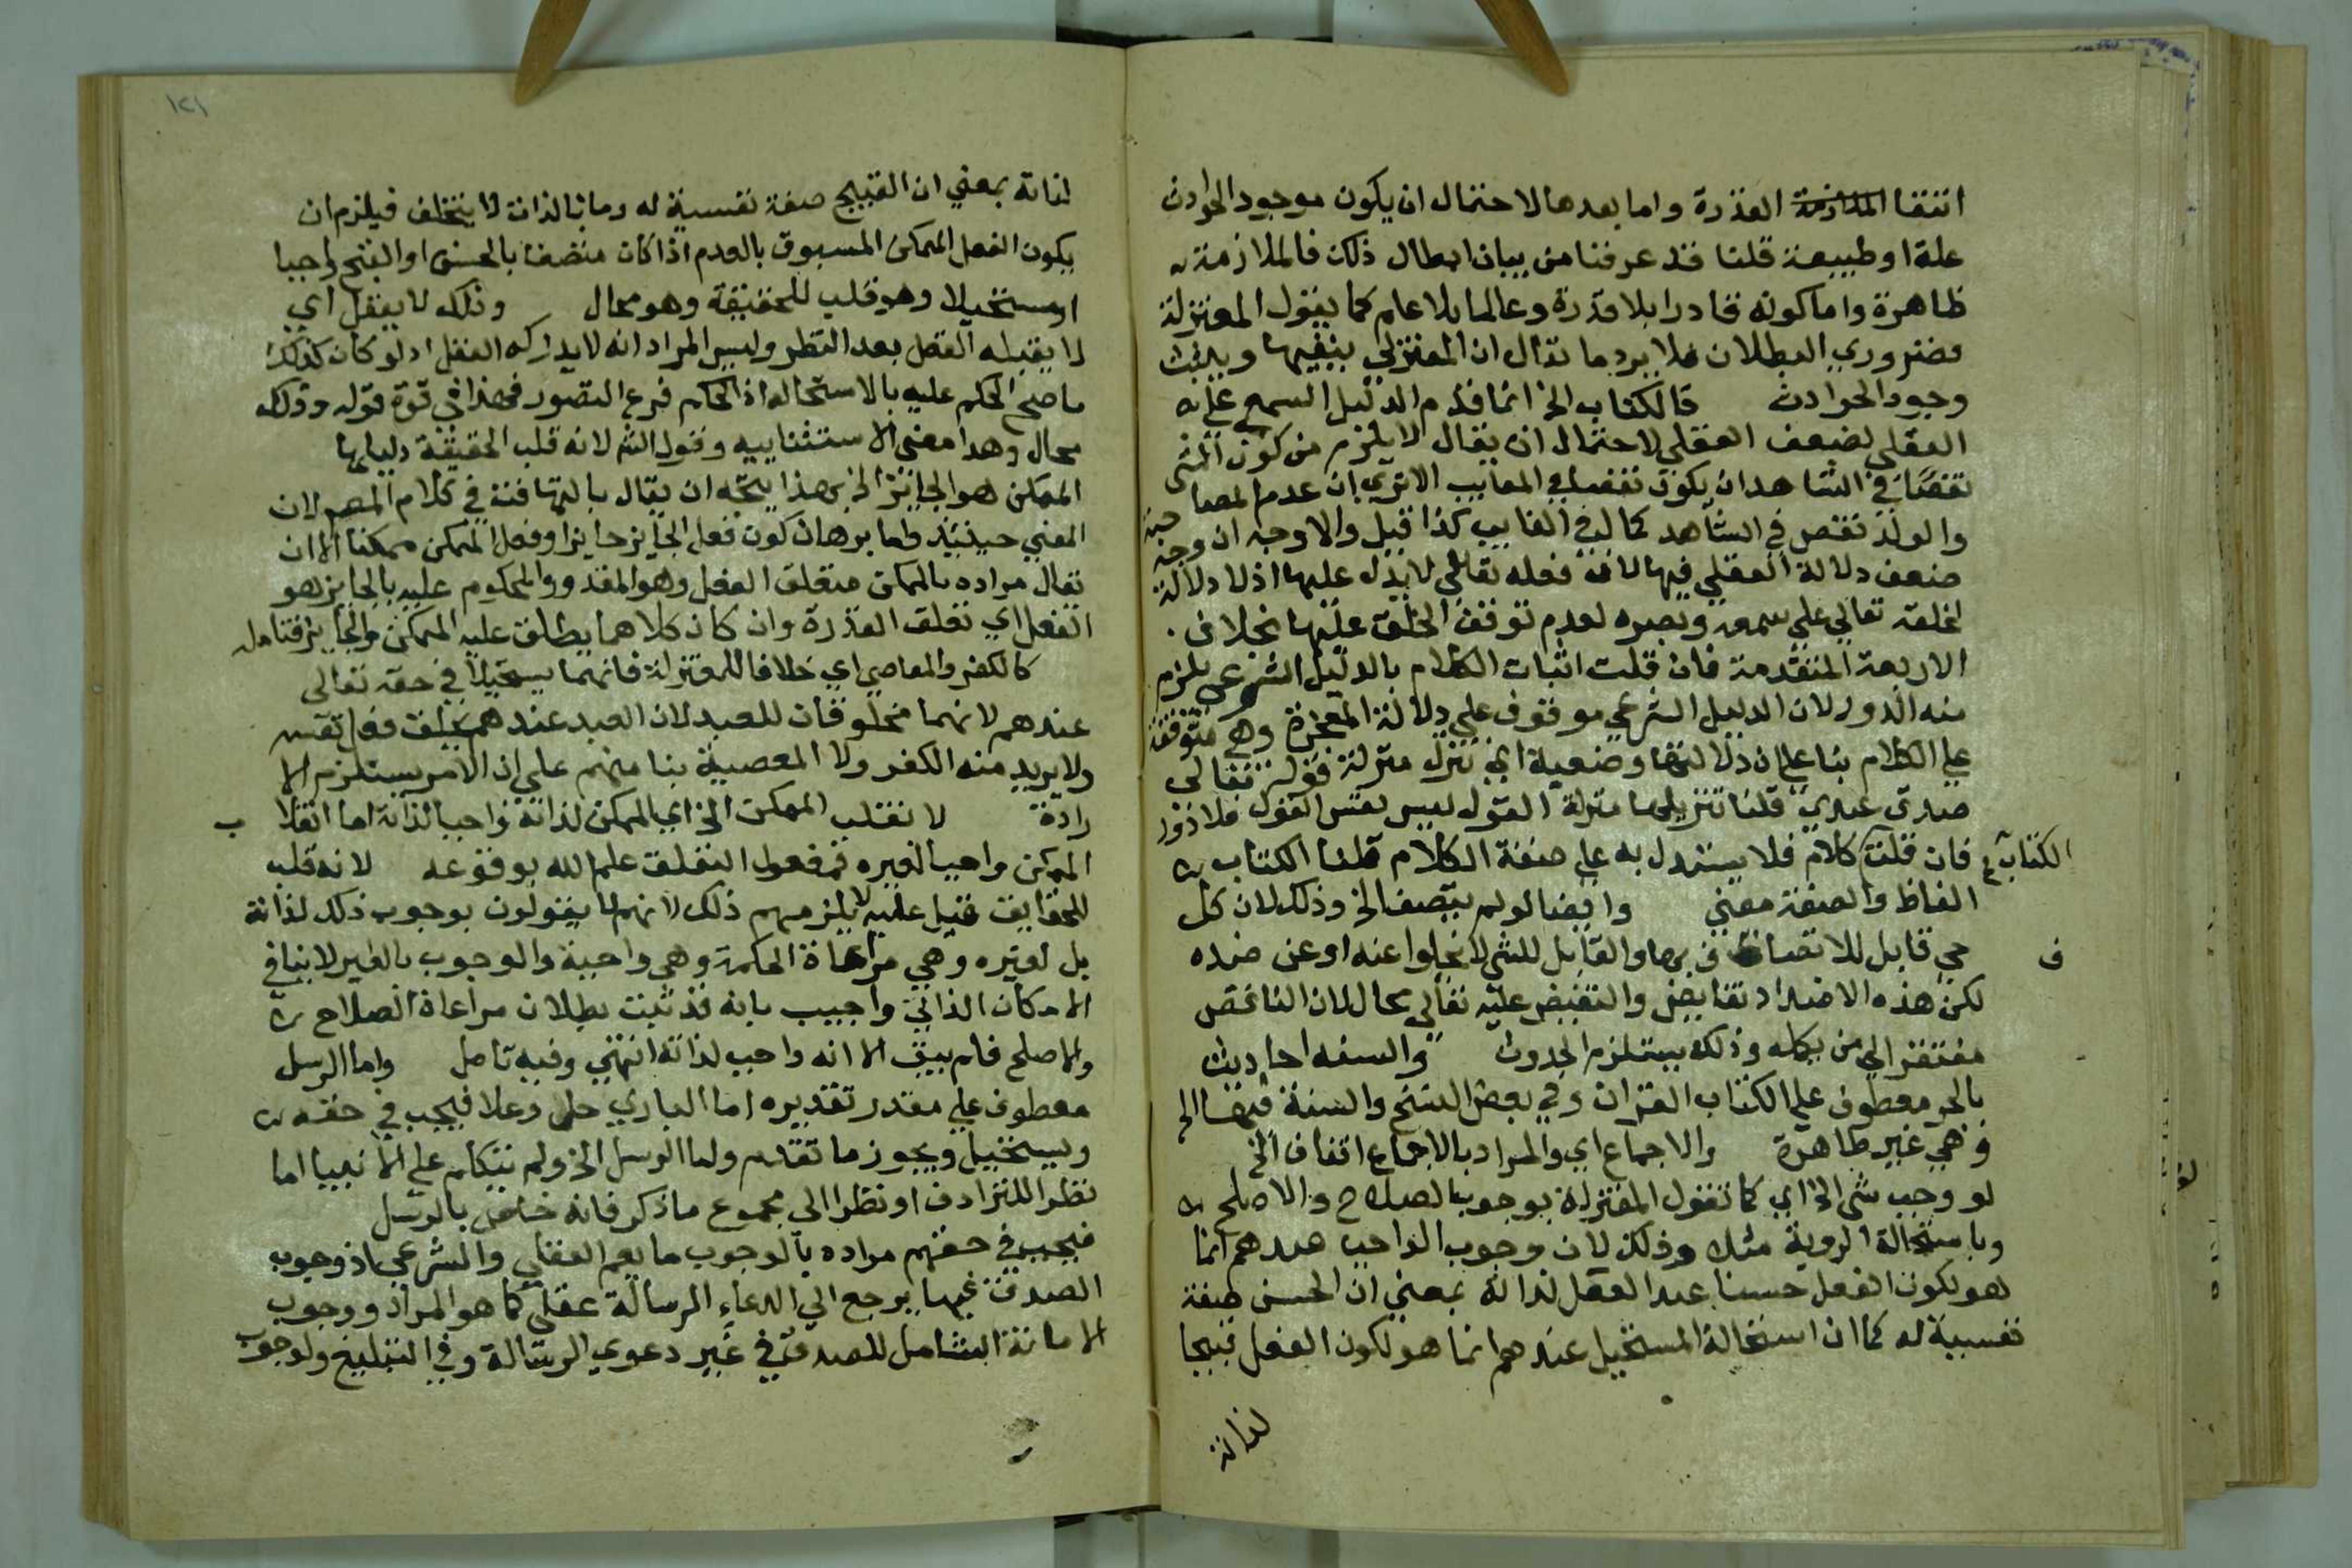 انتفا القدرة واما بعدها لاحتمال ان يكون موجود الحوادث
علة او طبيعة قلنا قد عرفنا من بيان ابطال ذلك فالملازمة
ظاهرة واما كونه قادرا بلا قدرة وعالما بلا علم كما يقول المعتزلة
فضروري البطلان فلا يرد ما يقال ان المعتزلي ينفيها ويثبت
وجود الحوادث فالكتاب الخ انما قدم الدليل السمعي علي
العقلي لضعف العقلي لاحتمال ان يقال لا يلزم من كون الشي
نقصا في الشاهد ان يكون نقصا في الغايب الا تري ان عدم الصاحبة
والولد نقص في الشاهد كمال في الغايب كذا قيل والاوجه ان وجه
ضعف دلالة العقلي فيها ان فعله تعالي لا يدل عليها اذ لا دلالة
لخلقه تعالي علي سمعه وبصره لعدم توقف الخلق عليها بخلاف
الاربعة المتقدمة فان قلت اثبات الكلام بالدليل الشرعي يلزم
منه الدور لان الدليل الشرعي موقوف علي دلالة المعجزة وهي متوقفة
علي الكلام بنا علي ان دلالتها وضعية اي تنزل منزلة قوله تعالي
صدق عبدي قلنا تنزيلها منزلة القول ليس نفس القول فلا دور
فان قلت الكتاب كلام فلا يستدل به علي صفة الكلام قلنا الكتاب
الفاظ والصفة معني وايضا لو لم يتصف الخ وذلك لان كل
حي قابل للاتصاف بها والقابل للشي لا يخلوا عنه او عن ضده
لكن هذه الاضداد نقايص والنقص عليه تعالي محال لان الناقص
مفتقر الي من يكمله وذلك يستلزم الحدوث والسنة احاديث
بالجر معطوف علي الكتاب القران وفي بعض النسخ والسنة فيها الخ
وهي غير ظاهرة والاجماع اي والمراد بالاجماع اتفاق الخ
لو وجب شي الخ اي كما تقول المعتزلة بوجوب الصلاح والاصلح
وباستحالة الروية مثلا وذلك لان وجوب الواجب عندهم انما
هو لكون الفعل حسنا عند العقل لذاته بمعني ان الحسن صفة
نفسية له كما ان استحالة المستحيل عندهم انما هو لكون الفعل قبيحا
لذاته
١٢١
لذاته بمعني ان القبيح صفة نفسية له وما بالذات لا يتخلف فيلزم ان
يكون الفعل الممكن المسبوق بالعدم اذا كان متصفا بالحسن او القبح واجبا
او مستحيلا وهو قلب للحقيقة وهو محال وذلك لا يعقل اي
لا يقبله العقل بعد النظر وليس المراد انه لا يدركه العقل اذ لو كان كذلك
ما صح الحكم عليه بالاستحالة اذ الحكم فرع التصور فهذا في قوة قوله وذلك
محال وهدا معني الاستثنايية وقول الش لانه قلب الحقيقة دليلها
الممكن هو الجايز الخ بهذا يتجه ان يقال بالتهافت في كلام المص لان
المعني حينيذ واما برهان كون فعل الجايز جايزا وفعل الممكن ممكنا الا ان
يقال مراده بالممكن متعلق الفعل وهو المقدور والمحكوم عليه بالجايز هو
الفعل اي تعلق القدرة وان كان كلاهما يطلق عليه الممكن والجايز فتامل
كالكفر والمعاصي اي خلافا للمعتزلة فانهما يستحيلا في حقه تعالي
عندهم لانهما مخلوقان للعبد لان العبد عندهم يخلق فعل نفسه
ولا يريد منه الكفر ولا المعصية بنا منهم علي ان الامر يستلزم الا
رادة لا نقلب الممكن الخ اي الممكن لذاته واجبا لذاته اما انقلاب
الممكن واجبا لغيره فمفعول لتعلق علم الله بوقوعه لانه قلب
للحقايق قيل عليه لا يلزمهم ذلك لانهم لا يقولون بوجوب ذلك لذاته
بل لغيره وهي مراعاة الحكمة وهي واجبة والوجوب بالغير لا ينافي
الامكان الذاتي واجيب بانه قد ثبت بطلان مراعاة الصلاح
والاصلح فلم يبق الا انه واجب لذاته انتهي وفيه تامل واما الرسل
معطوف علي مقدر تقديره اما الباري جل وعلا فيجب في حقه
ويستحيل ويجوز ما تقدم واما الرسل الخ ولم يتكلم علي الانبيا اما
نظرا للترادف او نظرا الي مجموع ما ذكر فانه خاص بالرسل
فيجب في حقهم مراده بالوجوب ما يعم العقلي والشرعي اذ وجوب
الصدق فيما يرجع الي ادعاء الرسالة عقلي كما هو المراد ووجوب
الامانة الشامل للصدق في غير دعوي الرسالة وفي التبليغ ولوجوب